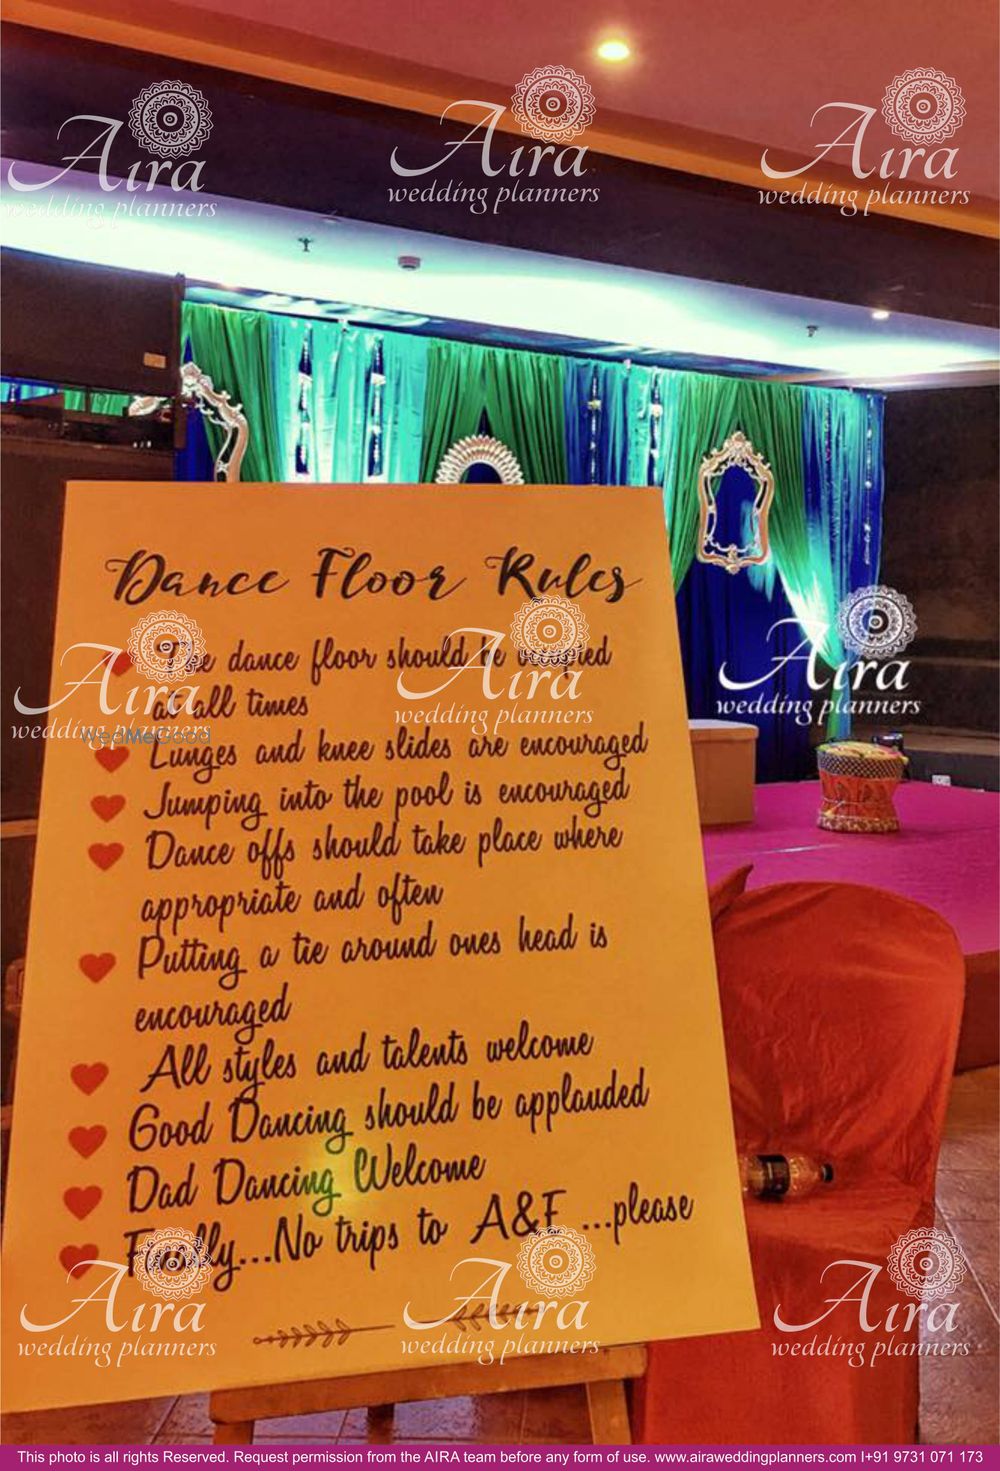 Aira
wedding planners
Aira
wedding planners
Aira
wedding planners
Dance Floor Rules
The dance floor should be occupied
at all times
Lunges and knee slides are encouraged
Jumping into the pool is encouraged
Dance offs should take place where
appropriate and often
Putting a tie around ones head is
encouraged
All styles and talents welcome
Good Dancing should be applauded
Dad Dancing Welcome
Finally...No trips to A&E ...please
Aira
wedding planners
Aira
wedding planners
Aira
wedding planners
WedMeGood
Aira
wedding planners
Aira
wedding planners
Aira
wedding planners
This photo is all rights Reserved. Request permission from the AIRA team before any form of use. www.airaweddingplanners.com l+91 9731 071 173